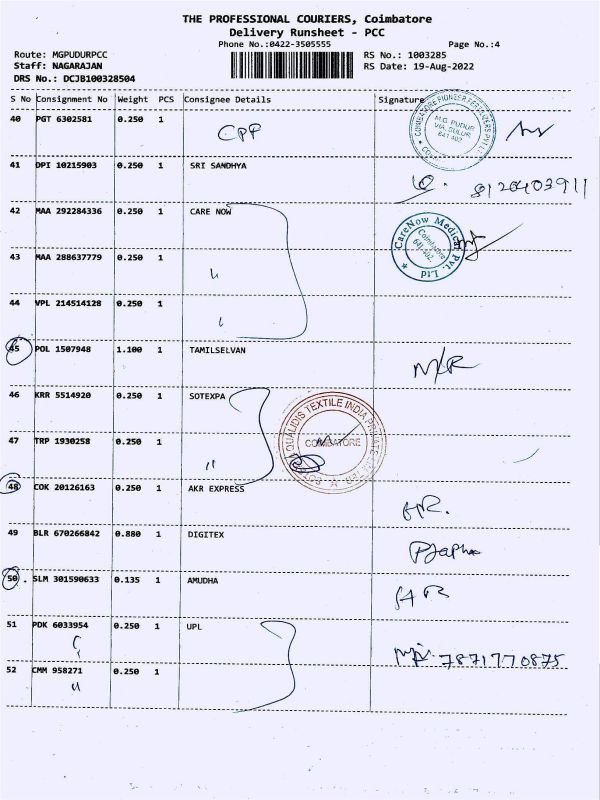 THE PROFESSIONAL COURIERS, Coimbatore
Delivery Runsheet - PCC
Phone No.:0422-3505555 Page No.:4
Route: MGPUDURPCC RS No.: 1003285
Staff: NAGARAJAN RS Date: 19-Aug-2022
DRS No.: DCJB100328504
S No Consignment No Weight PCS Consignee Details Signature
40 PGT 6302581 0.250 1 CPF
COIMBATORE PIONEER FERTILIZERS PVT LTD
M.G. PUDUR
VIA. SULUR
641 402
41 DPI 10215903 0.250 1 SRI SANDHYA 8120403911
42 MAA 292284336 0.250 1 CARE NOW
CareNow Medical Pvt. Ltd
Coimbatore
641 402.
43 MAA 288637779 0.250 1 "
44 VPL 214514128 0.250 1 "
45 POL 1507948 1.100 1 TAMILSELVAN N/R
46 KRR 5514920 0.250 1 SOTEXPA
QUALIDIS TEXTILE INDIA PRIVATE
COIMBATORE
47 TRP 1930258 0.250 1 "
48 COK 20126163 0.250 1 AKR EXPRESS
49 BLR 670266842 0.880 1 DIGITEX
50 . SLM 301590633 0.135 1 AMUDHA
51 PDK 6033954 0.250 1 UPL 7871770875
52 CMM 958271 0.250 1
"